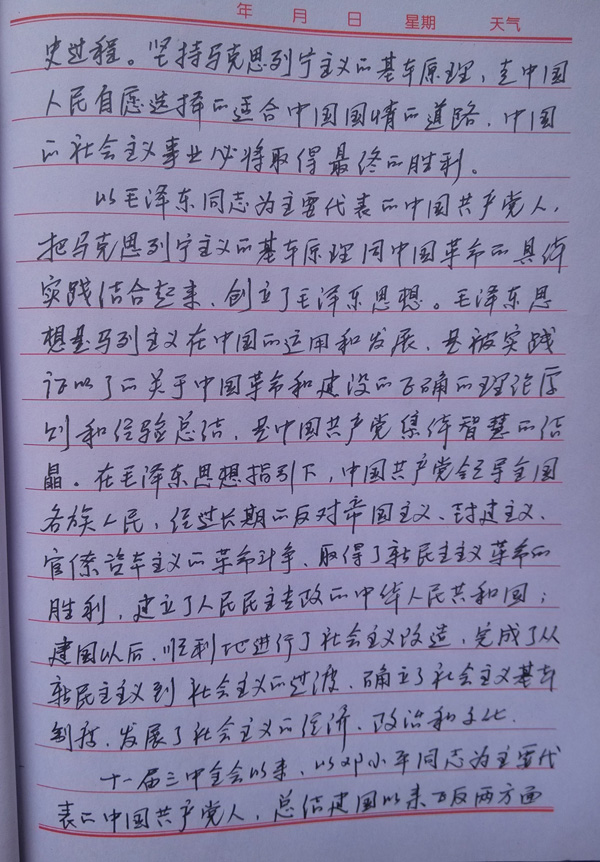 年 月 日 星期 天气
史过程。坚持马克思列宁主义的基本原理，走中国
人民自愿选择的适合中国国情的道路，中国
的社会主义事业必将取得最终的胜利。
以毛泽东同志为主要代表的中国共产党人，
把马克思列宁主义的基本原理同中国革命的具体
实践结合起来，创立了毛泽东思想。毛泽东思
想是马列主义在中国的运用和发展，是被实践
证明了的关于中国革命和建设的正确的理论原
则和经验总结，是中国共产党集体智慧的结
晶。在毛泽东思想指引下，中国共产党领导全国
各族人民，经过长期的反对帝国主义、封建主义、
官僚资本主义的革命斗争，取得了新民主主义革命的
胜利，建立了人民民主专政的中华人民共和国；
建国以后，顺利地进行了社会主义改造，完成了从
新民主主义到社会主义的过渡，确立了社会主义基本
制度，发展了社会主义的经济、政治和文化。
十一届三中全会以来，以邓小平同志为主要代
表的中国共产党人，总结建国以来正反两方面